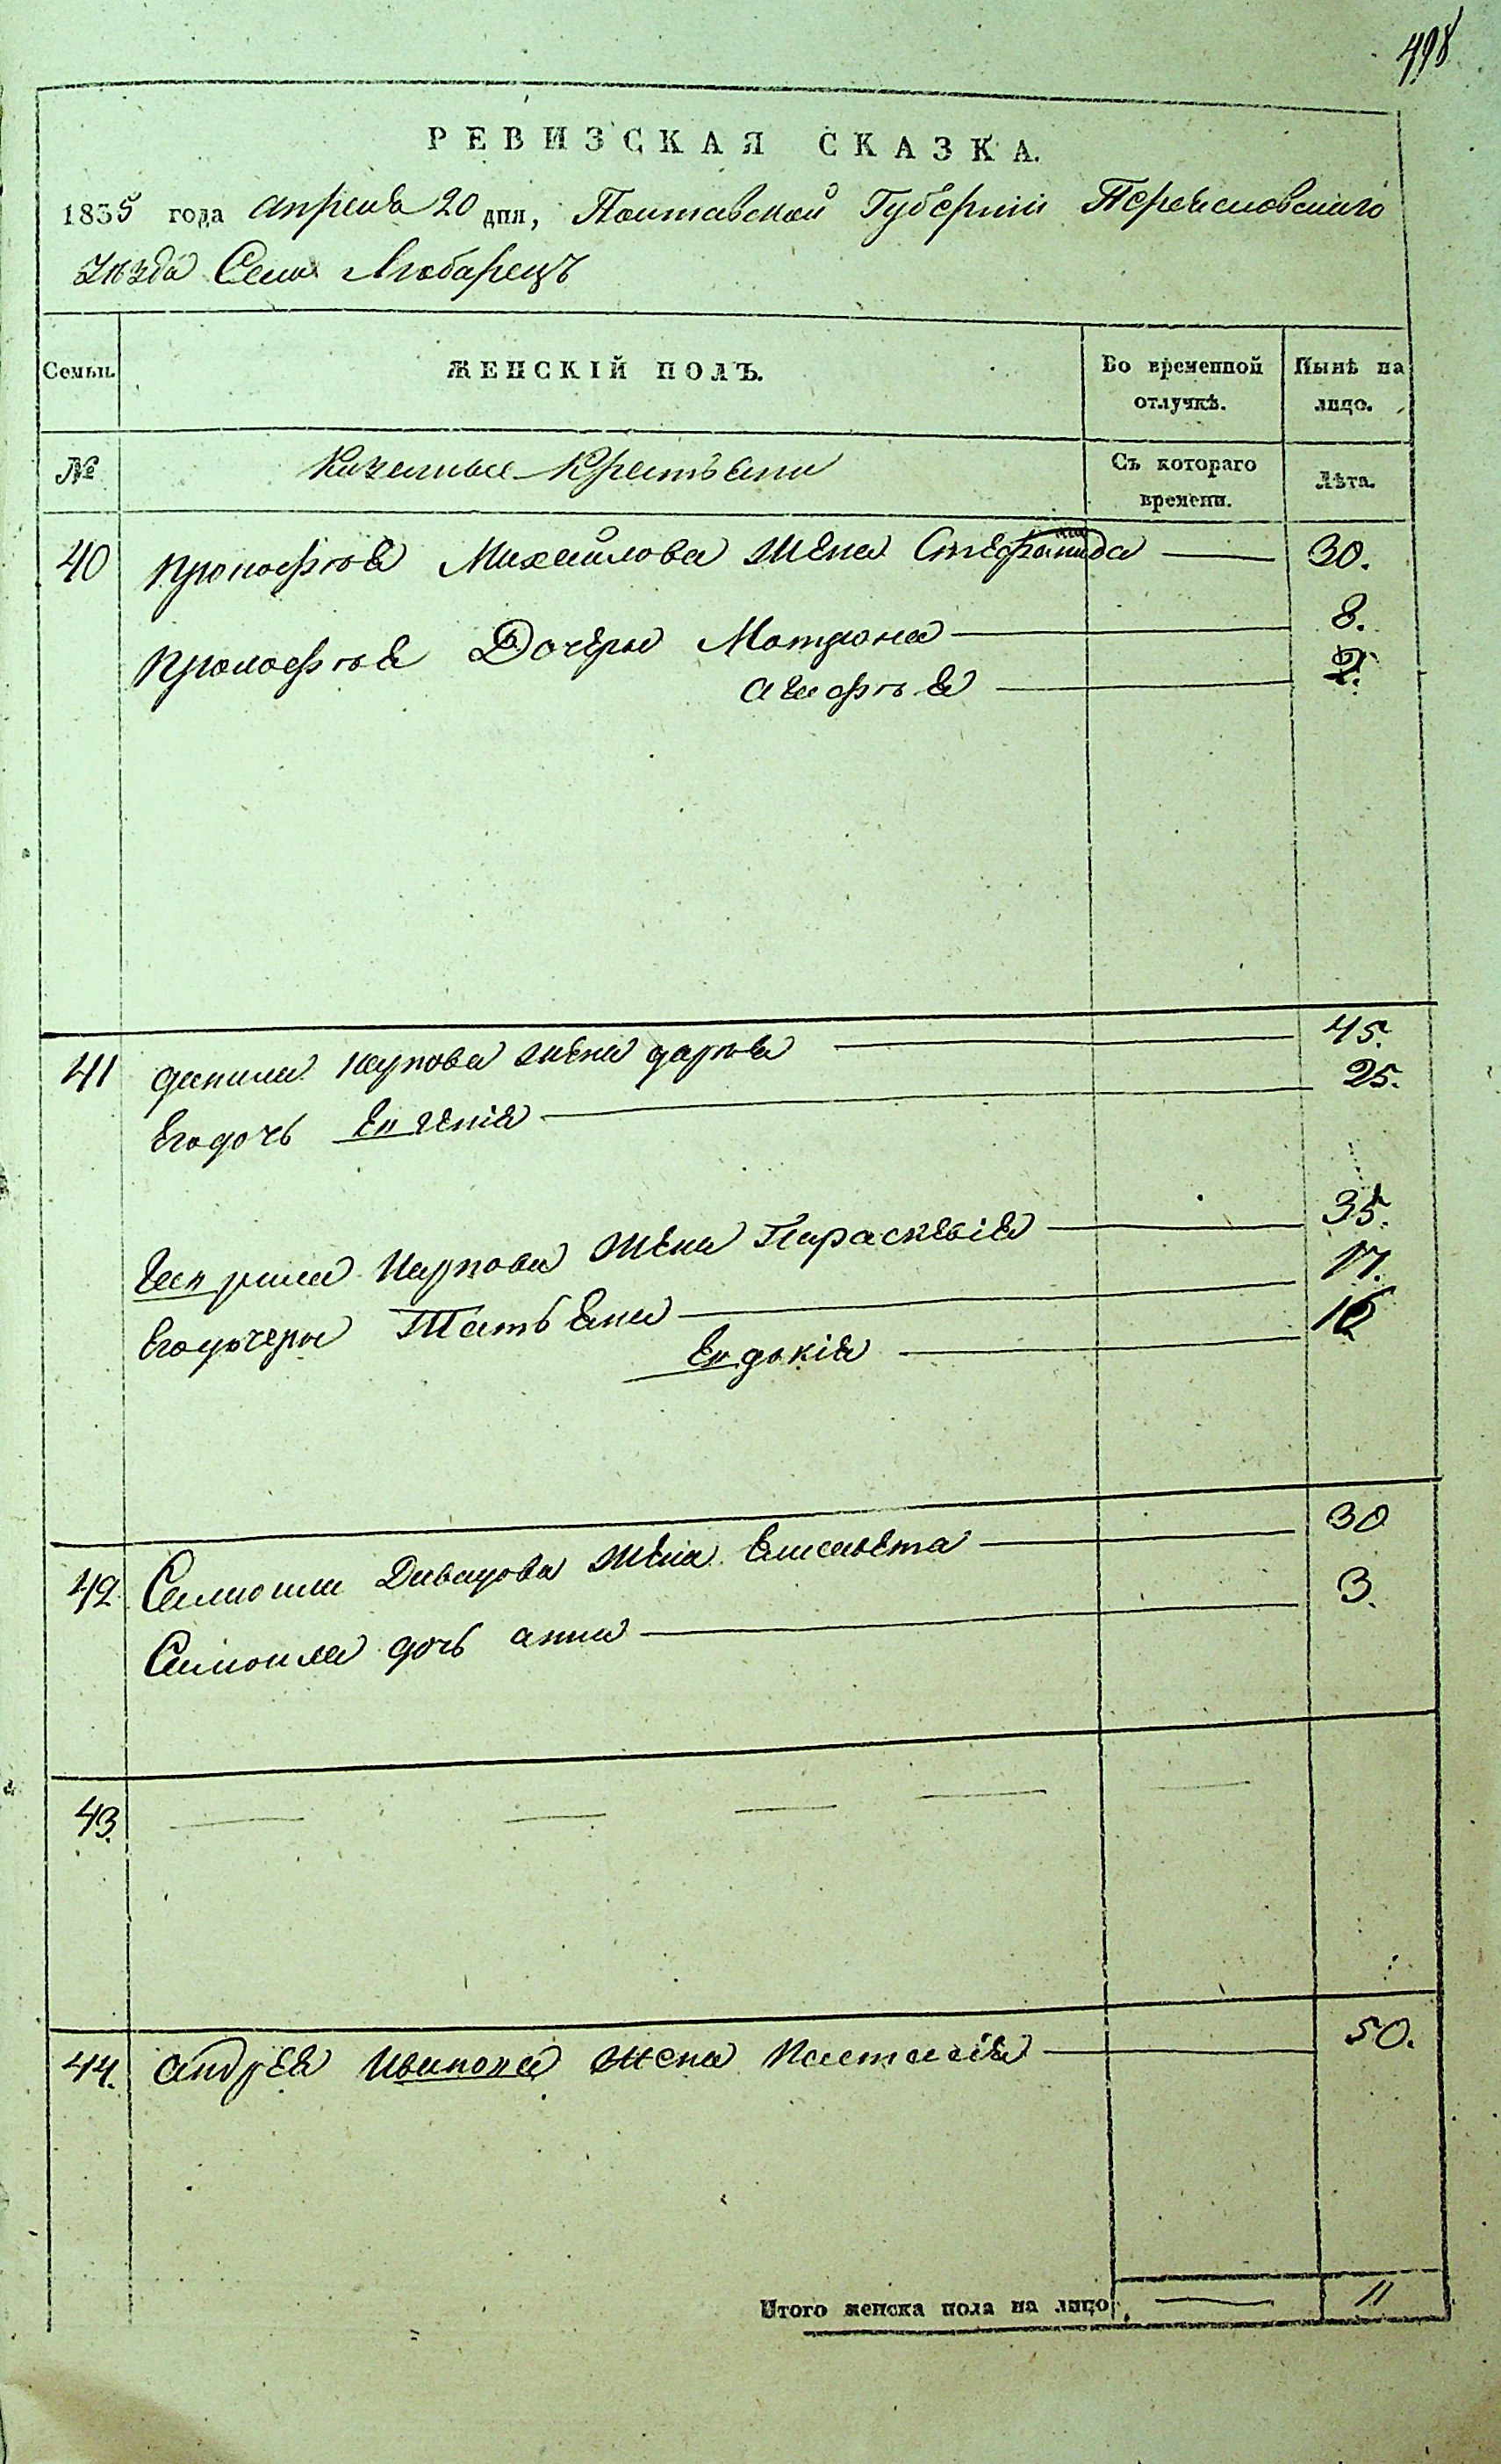 498
РЕВИЗСКАЯ СКАЗКА.
1835 года апреля 20 дня, Полтавской Губернии Переясловскаго
уезда Села Любарецъ
Семьи. ЖЕНСКІЙ ПОЛЪ. Во временной отлучкѣ. Нынѣ на лицо.
№ Казенные Крестьяни Съ котораго времени. Лѣта.
40 Прокофъя Михайлова жена Стефанида — 30.
Прокофъя Дочеры Мотрона — 8.
Агафъя — 2.
41 данила карпова жена дарья — 45.
Его дочь Евгенія — 25.
Гаврила Карпова жена Параскевія — 35.
Его дочеры Татьяна — 17.
Евдокія —
42 Самоила Давыдова жена Елисавета — 30
Самоила дочь анна — 3.
43. — — — — —
44. андрея Иванова жена Настасія — 50.
Итого женска пола на лицо — 11